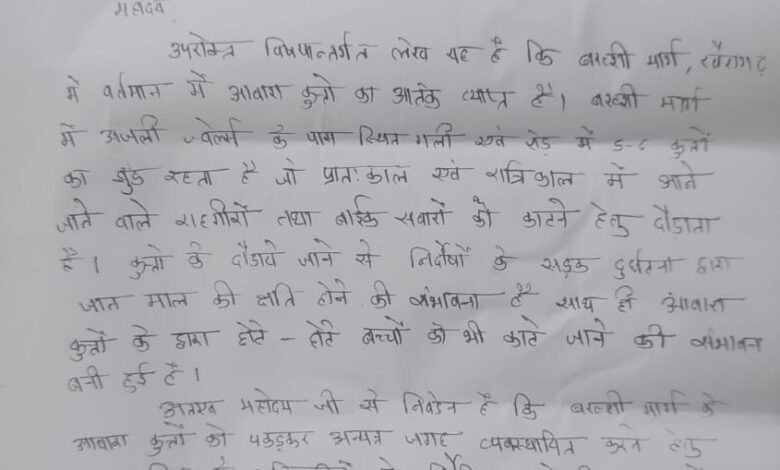 महोदय
उपरोक्त विषयान्तर्गत लेख यह है कि बख्शी मार्ग, खैरागढ़
में वर्तमान में आवारा कुत्तो का आतंक व्याप्त है। बख्शी मार्ग
में अंजली ज्वेलर्स के पास स्थित गली एवं रोड में 5-6 कुत्तों
का झुंड रहता है जो प्रातः काल एवं रात्रि काल में आने
जाने वाले राहगीरों तथा बाईक सवारों को काटने हेतु दौडाता
है। कुत्तो के दौडाये जाने से निर्दोषों के सड़क दुर्घटना द्वारा
जान माल की क्षति होने की संभावना है साथ ही आवारा
कुत्तों के द्वारा छोटे - छोटे बच्चों को भी काटे जाने की संभावना
बनी हुई है।
अतएव महोदय जी से निवेदन है कि बख्शी मार्ग के
आवारा कुत्तों को पकड़कर अन्यत्र जगह व्यवस्थापित करने हेतु